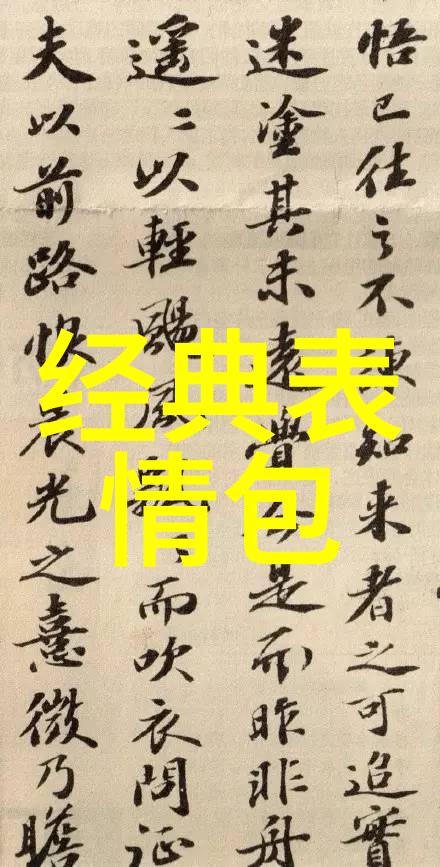 悟已往之不諫知来者之可追實
迷塗其未遠覺今是而昨非舟
遥〻以輕颺風飄〻而吹衣問征
夫以前路恨晨光之熹微乃瞻
经典表
情包